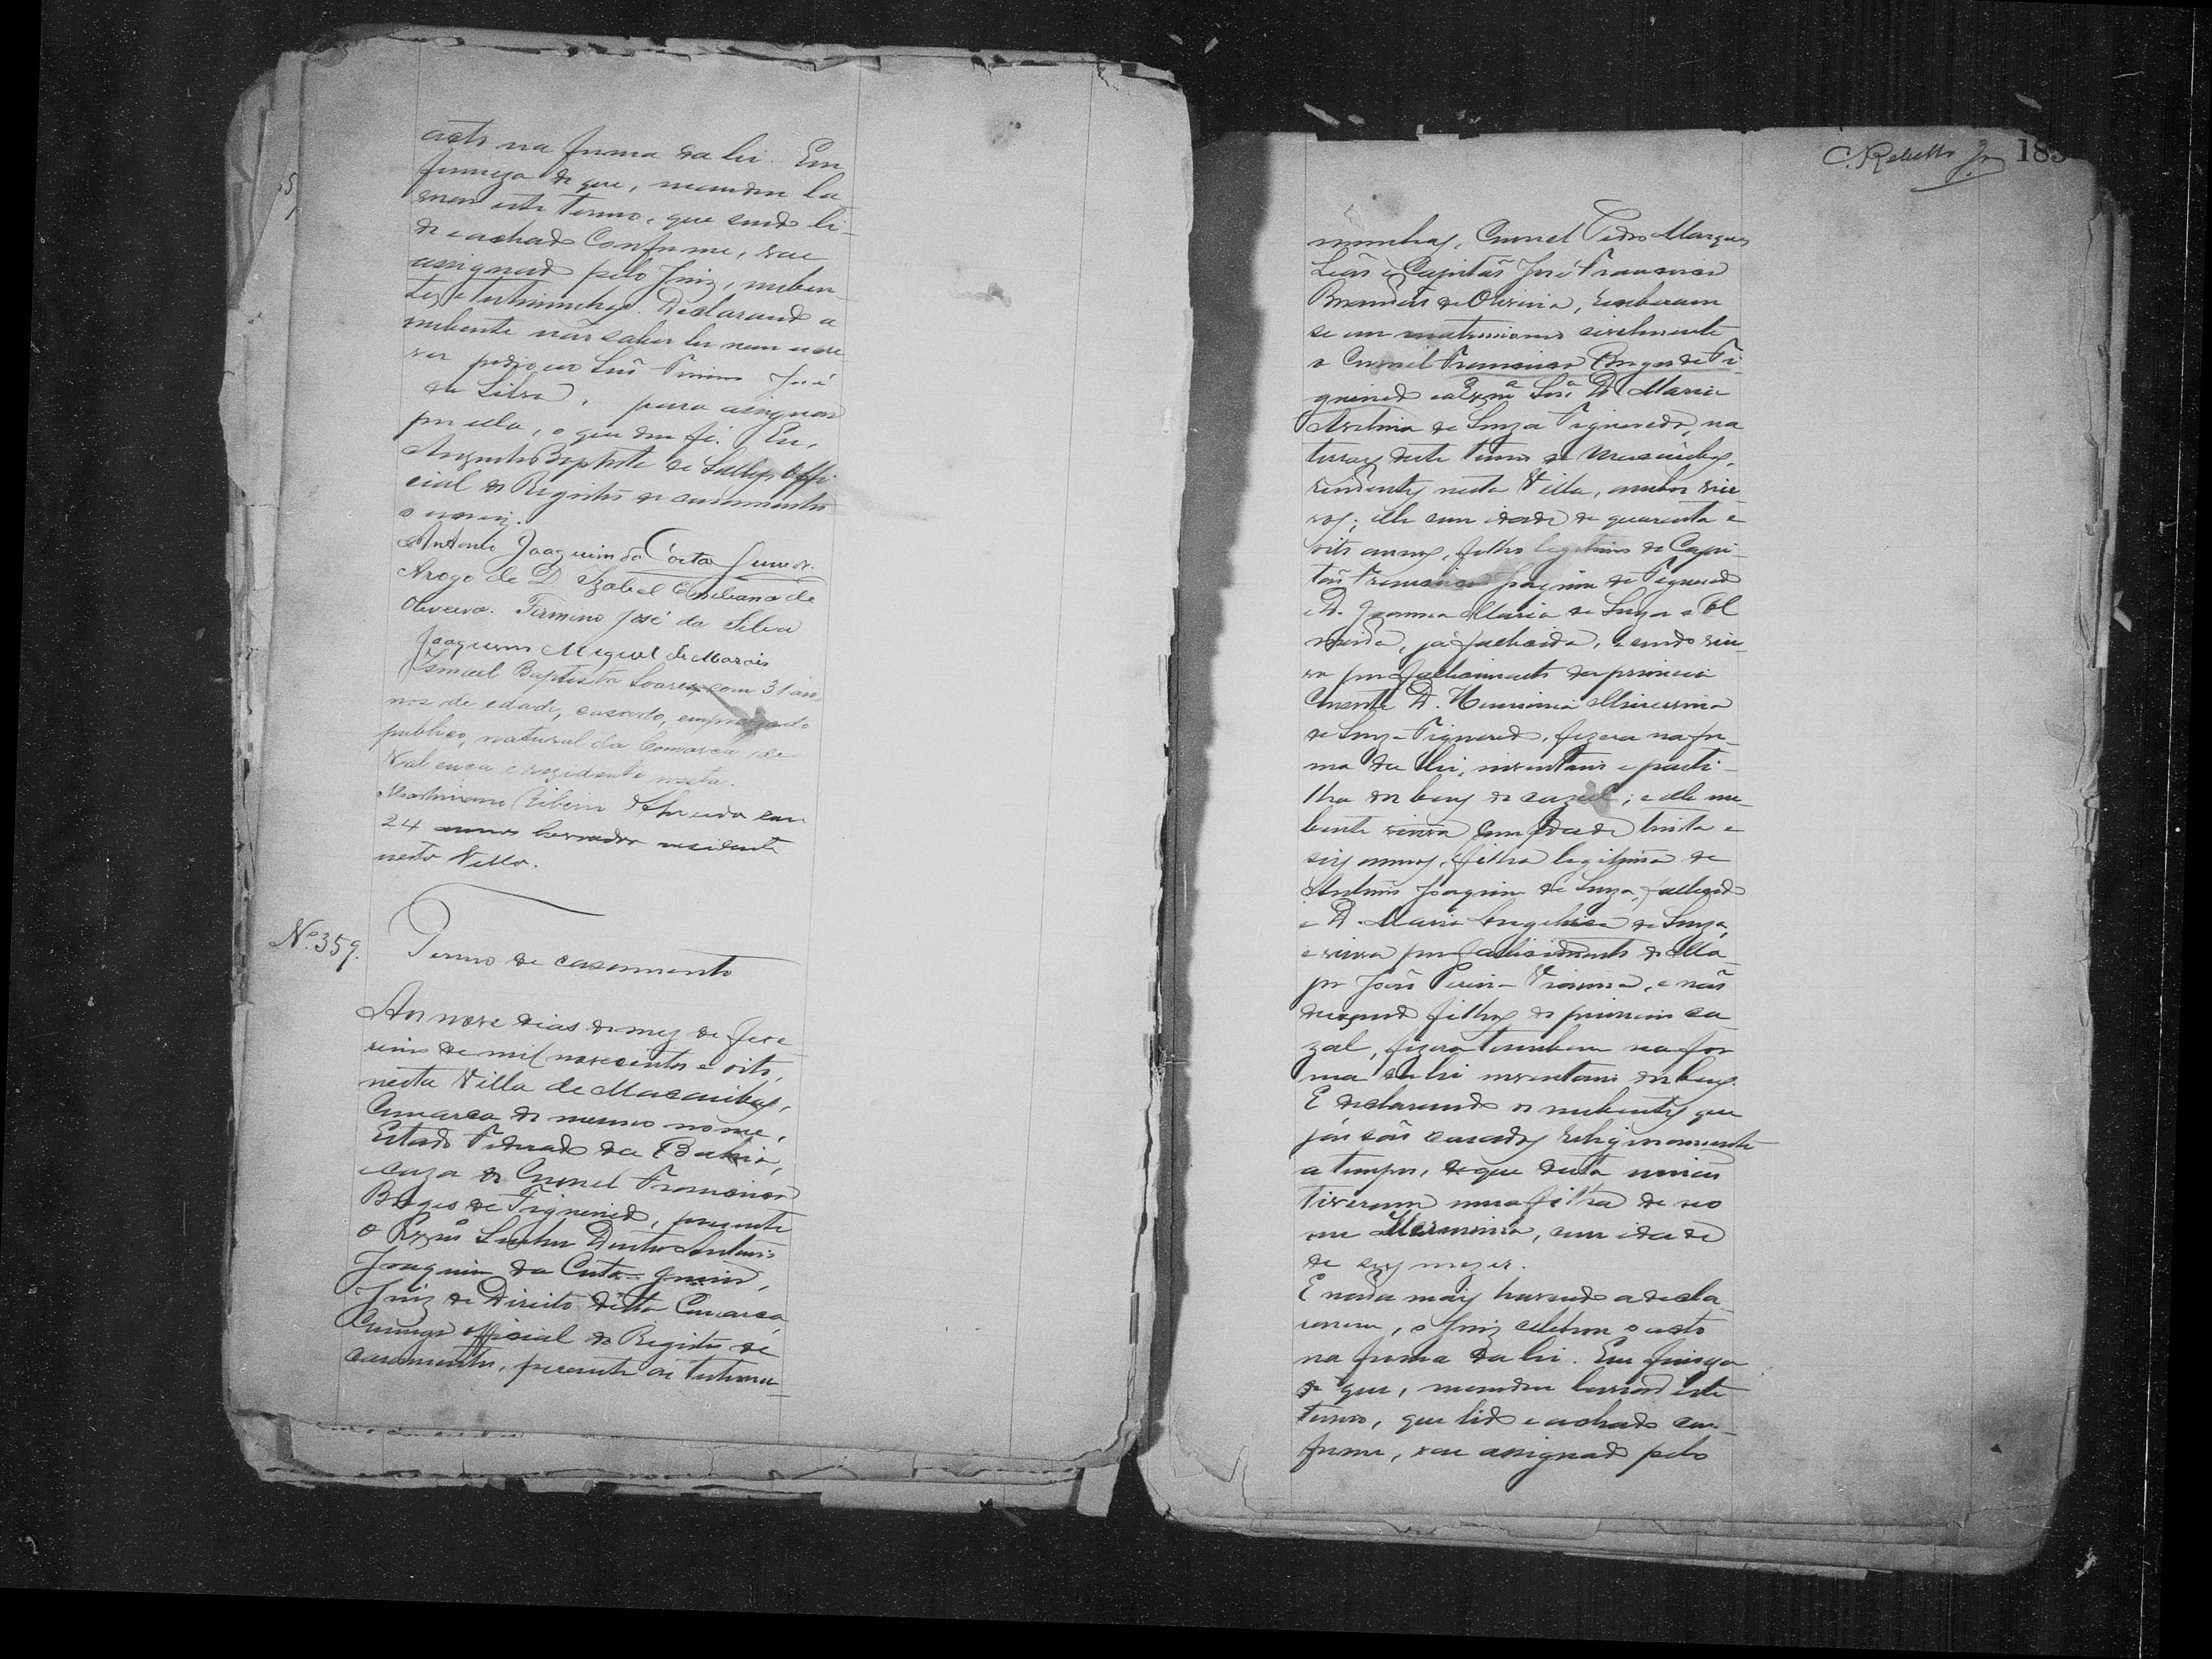 acto na forma da lei. Em
firmeza de que, mandou la
vrar este termo, que sendo li-
do e achado conforme, vae
assignado pelo Juiz, nuben-
tes e testimunhas. Declarando a
nubente não saber ler nem escre
ver pedio ao Snr. Firmino José
da Silva, para assignar
por ella, o que dou fé. Eu,
Augusto Baptista de Salles, Offi-
cial do Registro de casamentos
o escrevi.
Antonio Joaquim da Costa Junior.
Arogo de D. Izabel Emiliana de
Oliveira. Firmino José da Silva
Joaquim Miguel de Moraes
Ismael Baptista Soares, com 31 an-
nos de edade, casado, empregado
publico, natural da Comarca de
Valença e rezidente nesta.
Ribeiro com
24 annos lavrador residente
nesta Villa.
Nº 359.
Termo de casamento
Aos nove dias do mez de feve
reiro de mil novecentos e oito,
nesta Villa de Macaúbas,
Comarca do mesmo nome,
Estado Federado da Bahia,
caza do Coronel Francisco
Borges de Figueiredo, presente
o Exmo Senhor Doutor Antonio
Joaquim da Costa Junior,
Juiz de Direito desta Comarca,
Comigo official do Registro de
casamentos, perante as testemu-
C. Rebello Jr. 183
nunhas, Coronel Pedro Marques
Leão e Capitão José Francisco
Brandão de Oliveira, receberam
se em matrimonio civelmente
o Coronel Francisco Borges de Fi-
gueiredo e a Exma Snra D. Maria
Avelina de Souza Figueredo, na
turaes deste termo de Macaúbas,
residentes nesta Villa, ambos viu-
vos; elle com idade de quarenta e
oito annos, filho legitimo do Capi-
tão Francisco Joaquim de Figueredo
e D. Joanna Maria de Souza e Al
meida, já fallecida, e sendo viu-
vo por fallecimento da primeira
Consorte D. Herminia
de Souza Figueredo, fizera na for-
ma da lei, inventario e parti-
lha dos bens do cazal; e ella nu-
bente viuva com idade trinta e
seis annos, filha legitima de
Antonio Joaquim de Souza, fallecido
e D. Maria Angelica de Souza,
e viuva por fallecimento do Ma-
jor João Pereira Vianna, e não
deixando filhos do primeiro ca-
zal, fizera tambem na for
ma da lei inventario dos bens.
E declarando os nubentes que
já são casados religiosamente
a tempos, de que desta união
tiveram uma filha de no
me Herminia, com idade
de seis mezes.
E nada mais havendo a decla-
rarem, o Juiz celebrou o acto
na forma da lei. Em firmeza
de que, mandou lavrar este
termo, que lido e achado con-
forme, vae assignado pelo